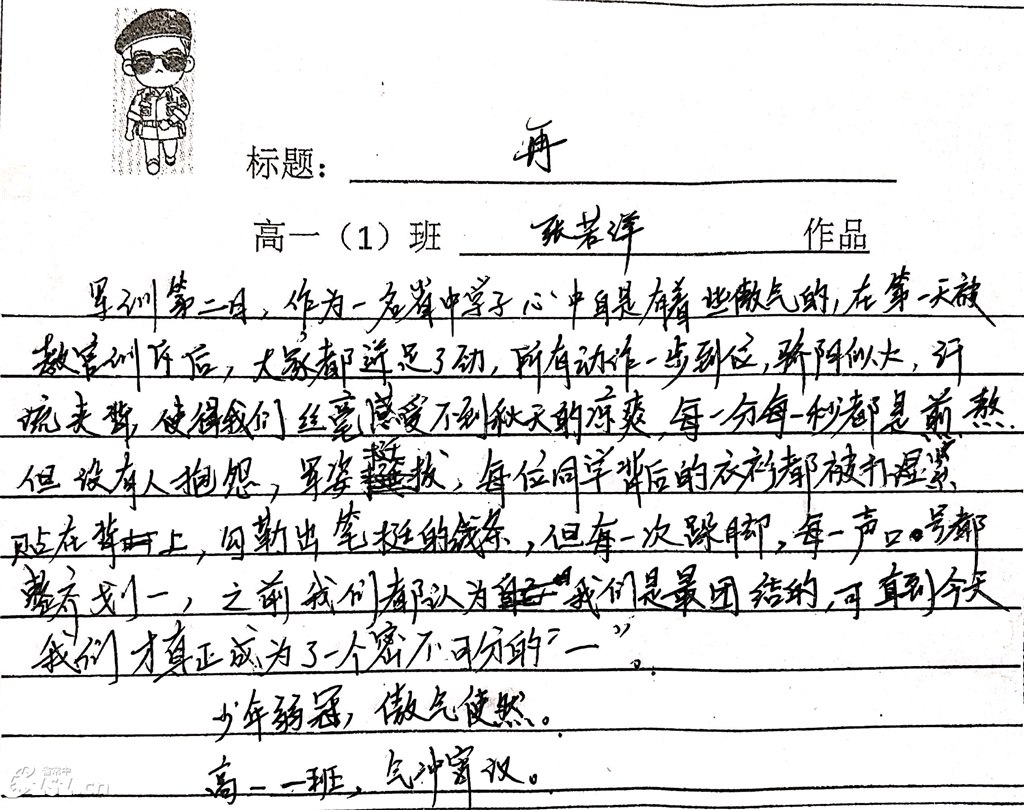 标题：再
高一（1）班 张若洋 作品
军训第二日，作为一名省中学子心中自是有着些傲气的，在第一天被
教官训斥后，大家都迸足了劲，所有动作一步到位，骄阳似火，汗
流夹背，使得我们丝毫感受不到秋天的凉爽，每一分每一秒都是煎熬.
但没有人抱怨，军姿挺拔，每位同学背后的衣衫都被打湿紧
贴在背上，勾勒出笔挺的线条，但每一次跺脚，每一声口号都
整齐划一，之前我们都认为我们是最团结的，可直到今天
我们才真正成为了一个密不可分的“一”。
少年弱冠，傲气使然。
高一一班，气冲霄汉。